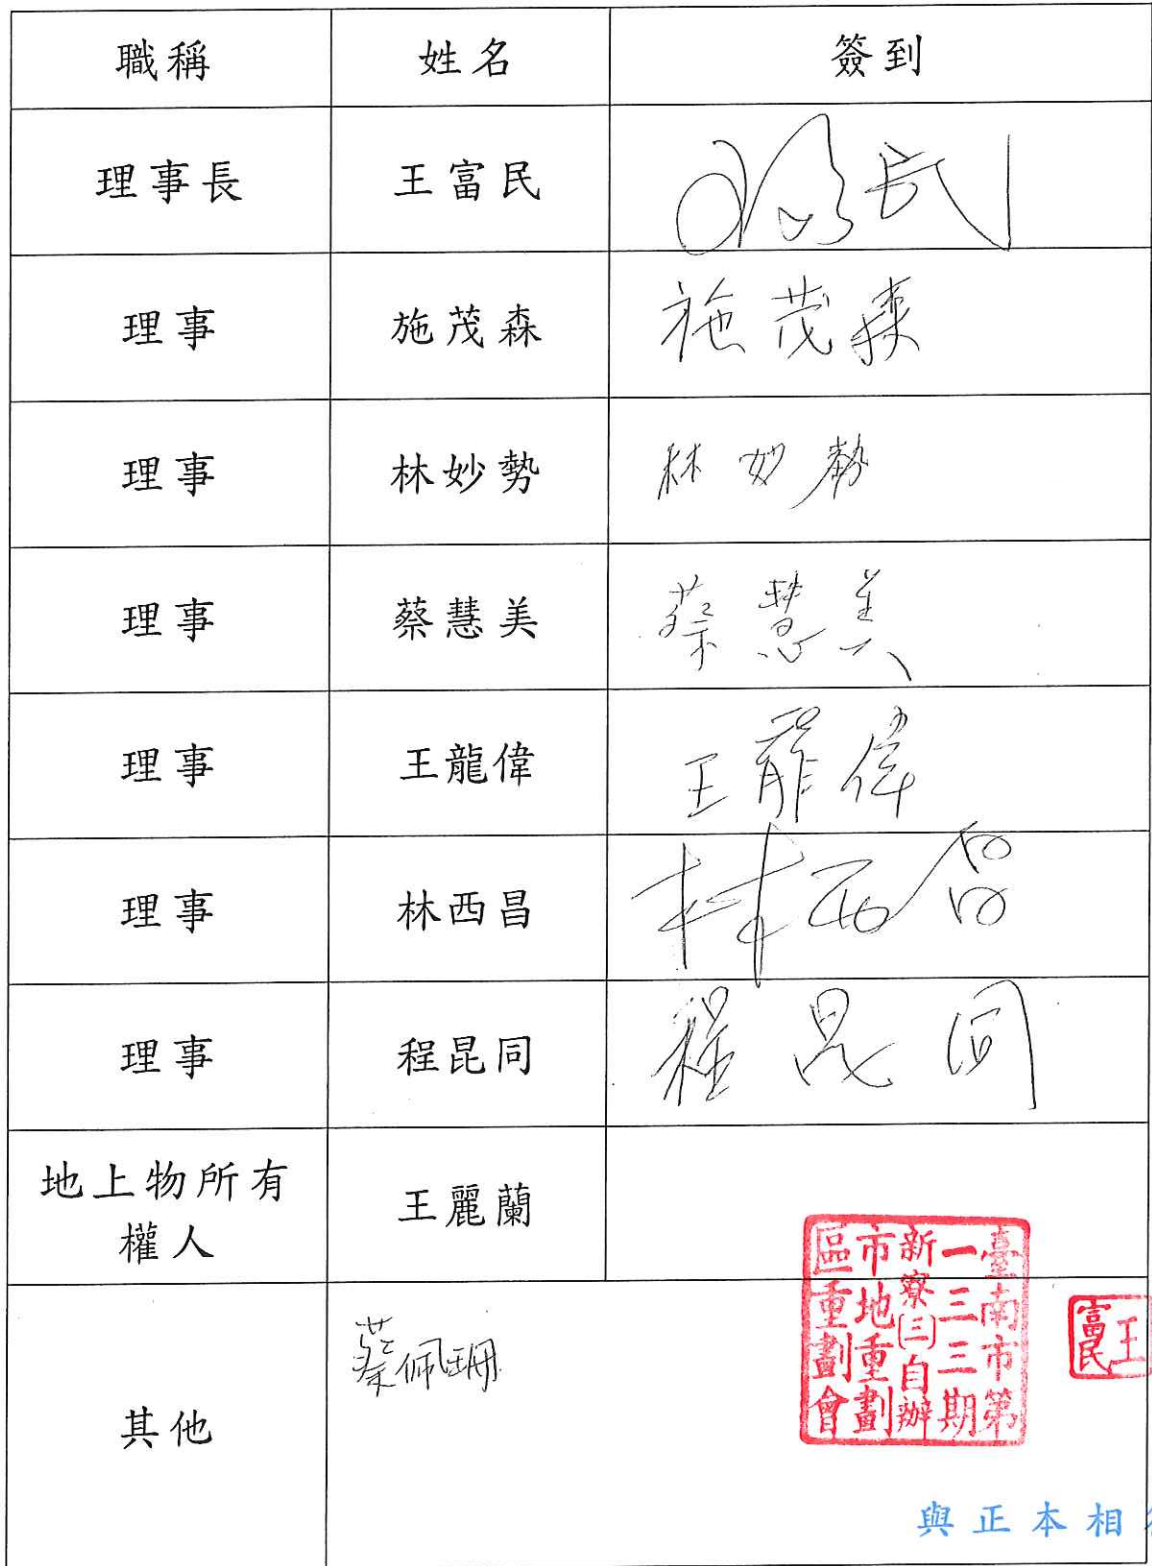 職稱 姓名 簽到
理事長 王富民 王富民
理事 施茂森 施茂森
理事 林妙勢 林妙勢
理事 蔡慧美 蔡慧美
理事 王龍偉 王龍偉
理事 林西昌 林西昌
理事 程昆同 程昆同
地上物所有
權人
王麗蘭
其他
蔡佩珊
臺南市第
一三三期
新寮(三)自辦
市地重劃
區重劃會
王
富民
與正本相